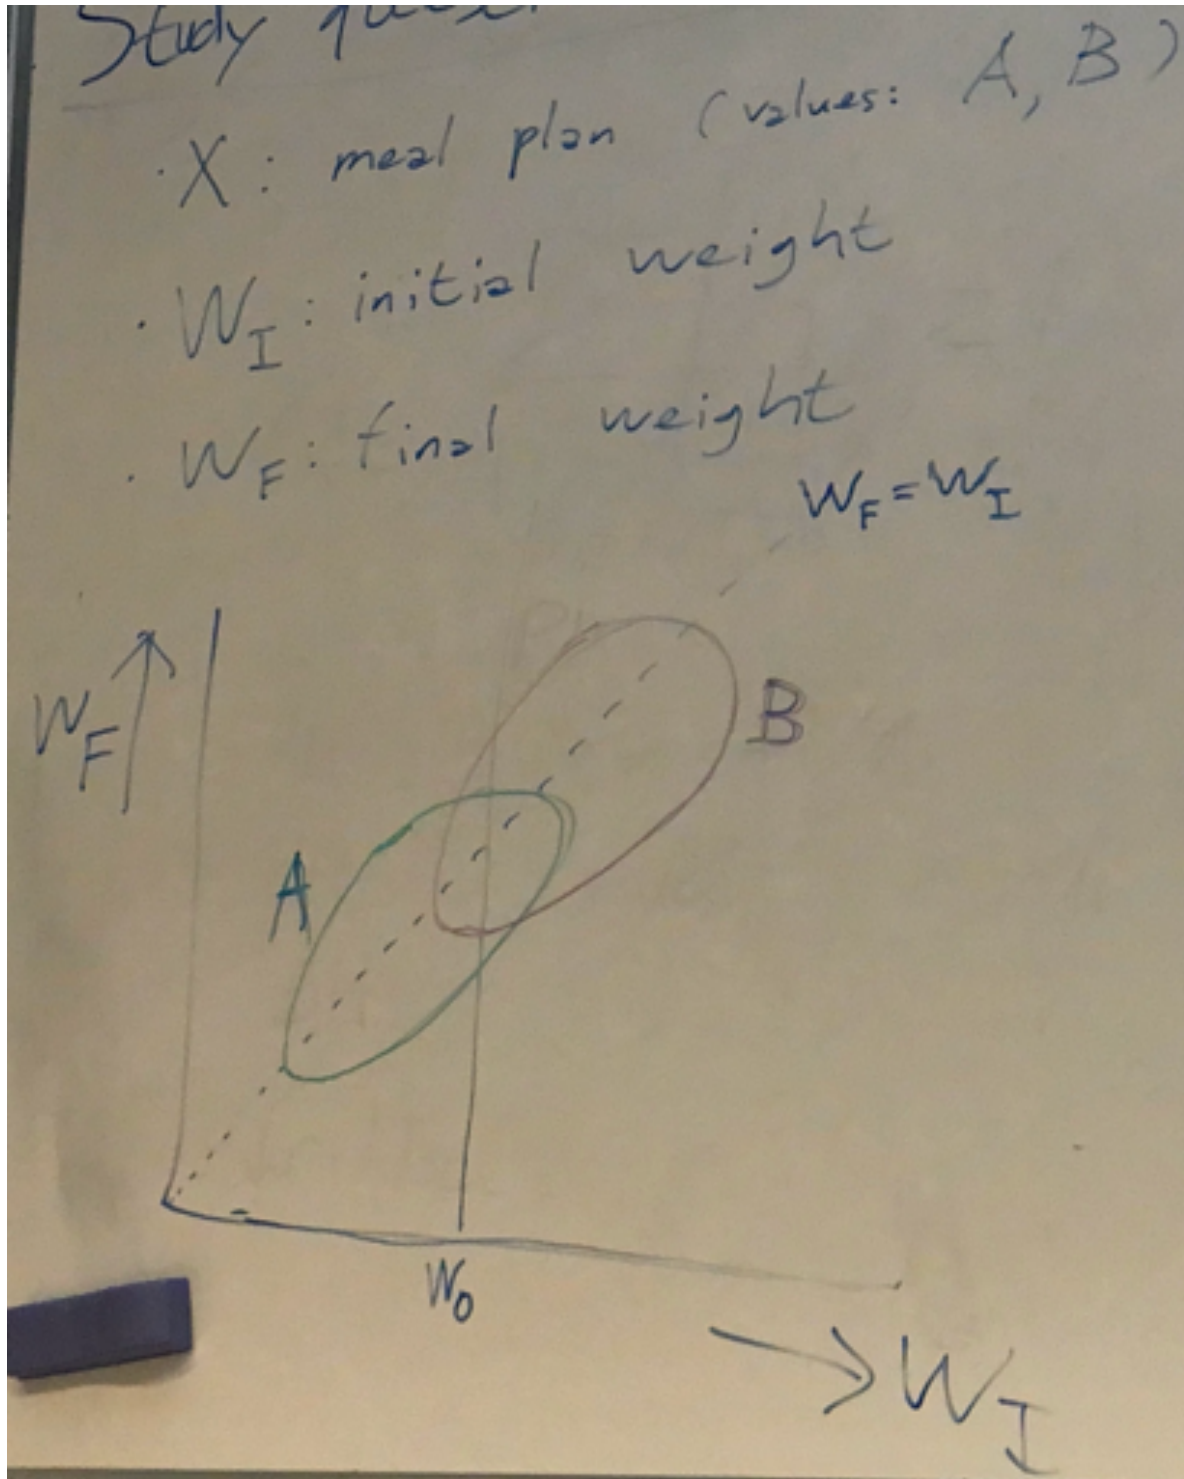 Study
· X : meal plan (values: A, B)
· W_I : initial weight
· W_F : final weight
W_F = W_I
W_F
B
A
W_0
W_I